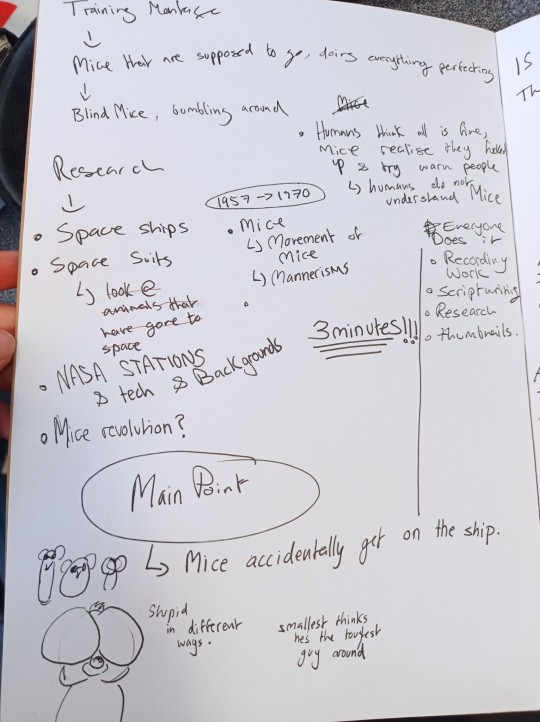 Training Montage
↓
Mice that are supposed to go, doing everything perfecting
↓
Blind Mice, bumbling around
Mice
• Humans think all is fine,
Mice realise they
up & try warn people
↳ humans do not
understand Mice
Research
↓
• Space ships
• Space Suits
↳ look @
animals that
have gone to
space
• NASA STATIONS
& tech & Backgrounds
• Mice revolution?
1957 → 1970
• Mice
↳ Movement of
Mice
↳ Mannerisms
•
3 minutes!!!
Everyone
Does it
• Recording
Work
• Scriptwriting
• Research
• thumbnails.
Main Point
↳ Mice accidentally get on the ship.
Stupid
in different
ways.
smallest thinks
hes the toughest
guy around
IS
Th